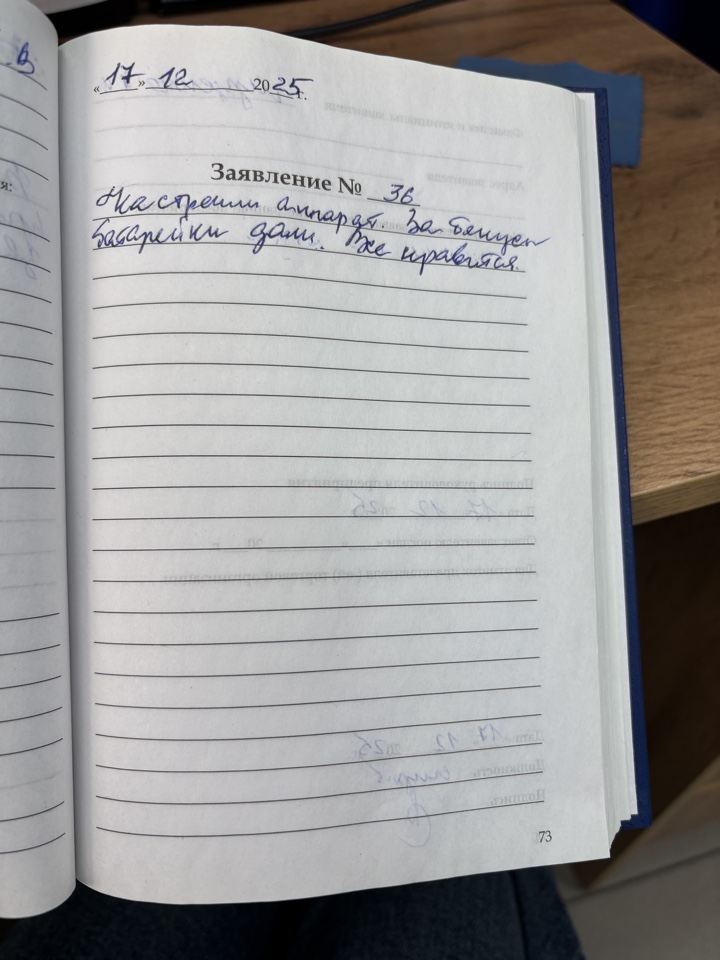 «17» 12 2025 г.
Заявление № 36
Настроили аппарат. За
батарейки дали. Все нравится.
73